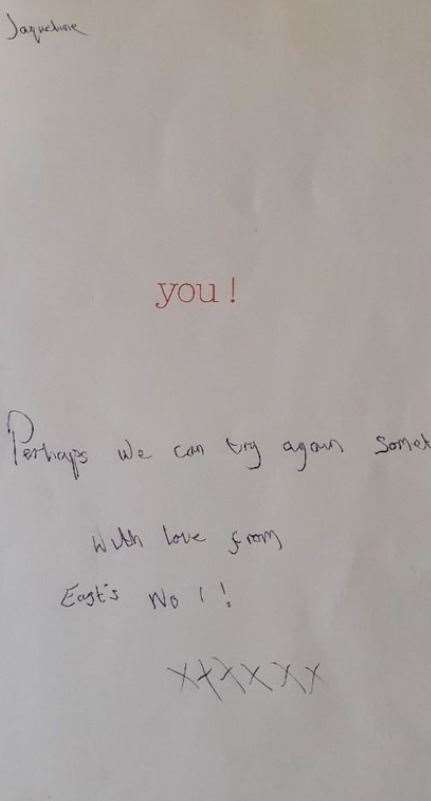 Jaqueline
you!
Perhaps we can try again somet
With love from
East's No 1!
xxxxxx